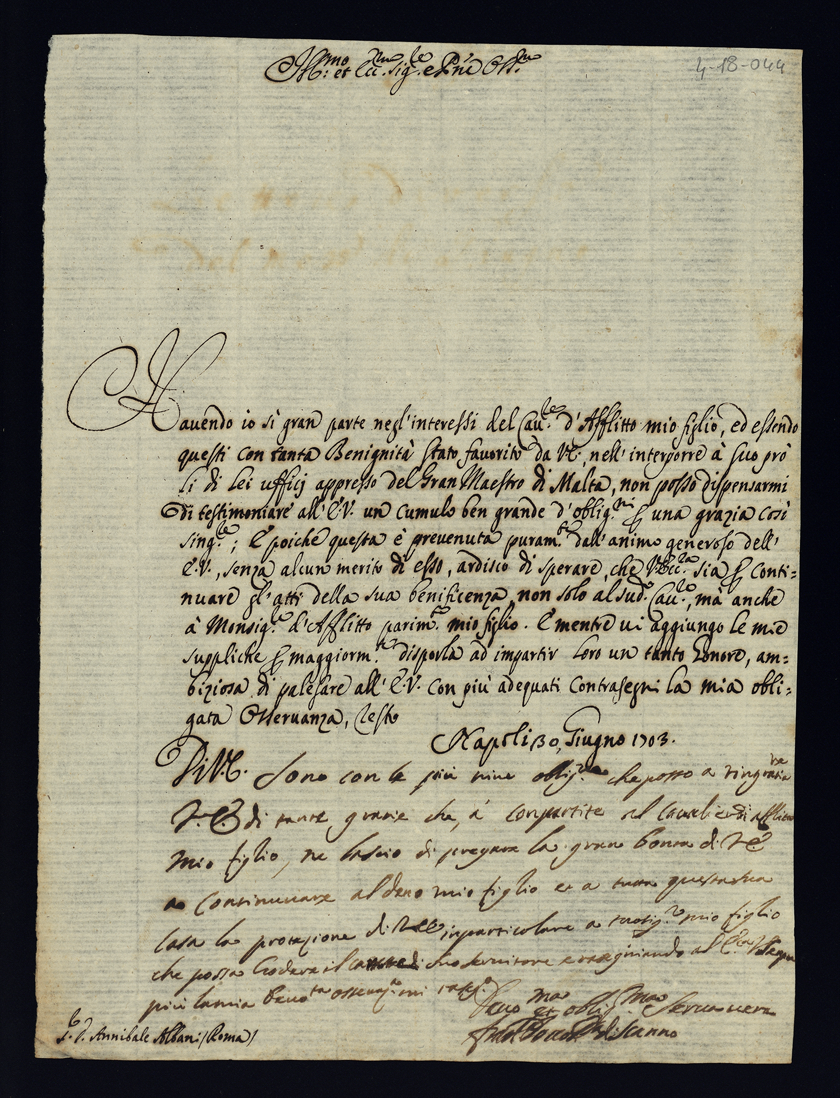 Ill:mo et Ecc:mo Sig:re e P'rne Oss:mo
4-18-044
Hauendo io sì gran parte negl'interessi del Cau:re d'Afflitto mio figlio, ed essendo
questi con tanta Benignità stato favorito da VE:, nell'interporre à suo prò
li di Lei ufficij appresso del Gran Maestro di Malta, non posso dispensarmi
di testimoniare all'E.V. un cumulo ben grande d'oblig:ni una grazia così
sing:re; E poiche questa è prevenuta puram:te dall'animo generoso dell'
E.V., senza alcun merito di esso, ardisco di sperare, che V.Ecc:za sia conti=
nuare gl'atti della sua beneficenza, non solo al sud:o Cau:re, mà anche
à Monsig:re d'Afflitto parim:te mio figlio. E mentre vi aggiungo le mie
suppliche maggiorm:te disporla ad impartir loro un tanto honore, am=
biziosa di palesare all'E.V. con più adequati contrasegni la mia obli=
gata Osseruanza, resto
Napoli 30, Giugno 1703.
Di V.E. Sono con le più viue oblig:ni che posso a ringratia
V.E. di tante grazie che, à conpartite al Caualier di afflitto
mio figlio, ne lascio di pregare la gran bontà di V.E.
a continuuare al detto mio figlio et a tutta questa sua
casa la protezione di V.E. inparticolare a mosig:re mio figlio
che possa godere il di suo seruitore e rasegniando al
più la mia
Deuo:ma et oblig:ma Serua uera
di Scanno
S.D. Annibale Albani (Roma)